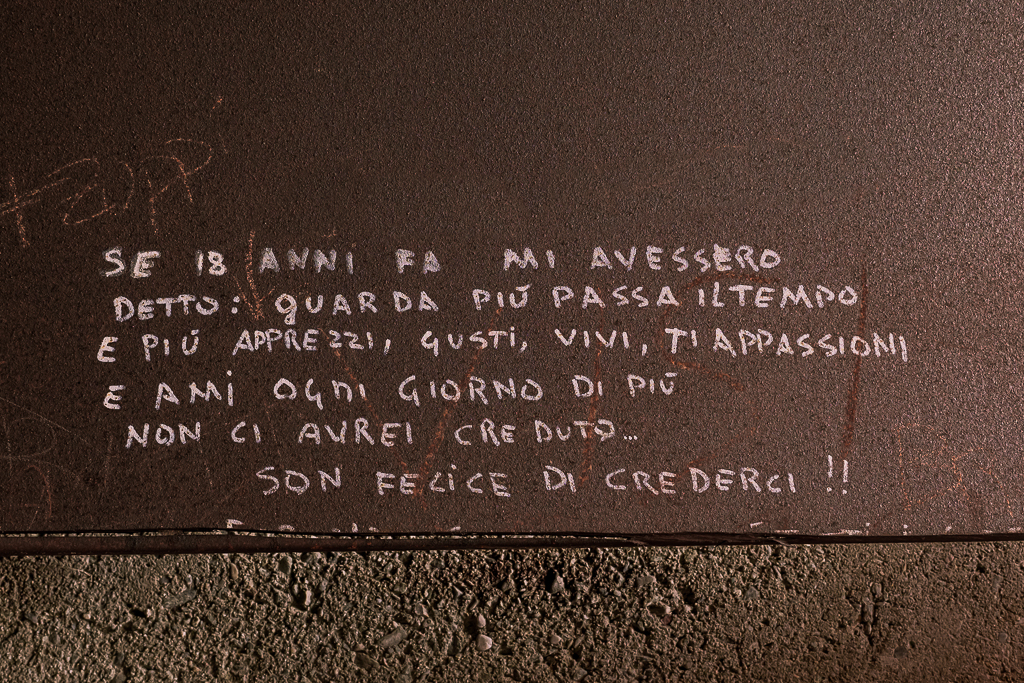 SE 18 ANNI FA MI AVESSERO
DETTO: GUARDA PIÚ PASSA IL TEMPO
E PIÚ APPREZZI, GUSTI, VIVI, TI APPASSIONI
E AMI OGNI GIORNO DI PIÚ
NON CI AVREI CREDUTO...
SON FELICE DI CREDERCI !!